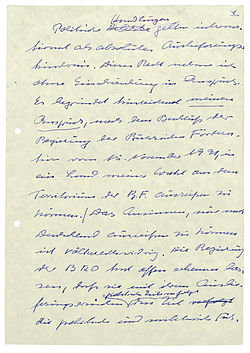 4
Handlungen
Politische Delikte gelten interna-
tional als absolutes Auslieferungs-
hindernis. Dieses Recht nehme ich
ohne Einschränkung in Anspruch.
Es begründet hinreichend meinen
Anspruch, nach dem Beschluß der
Regierung der Russischen Födera-
tion vom 15. November 1991, in
ein Land meiner Wahl aus dem
Territorium der R.F. ausreisen zu
können. Das Ansinnen, nur nach
Deutschland ausreisen zu können
ist völkerrechtswidrig. Die Regierung
der BRD hat offen erkennen las-
sen, daß sie mit dem Ausliefe-
rungsersuchen
die politische und militärische